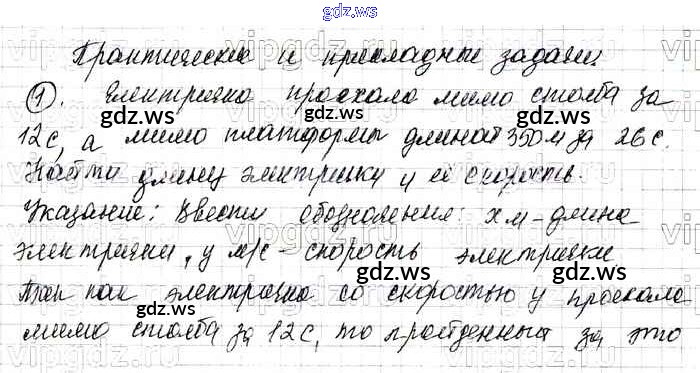 gdz.ws
Практические и прикладные задачи.
①. Электричка проехала мимо столба за
gdz.ws gdz.ws
12с, а мимо платформы длиной 350 м за 26 с.
Найти длину электрички и её скорость.
gdz.ws gdz.ws
Указание: Ввести обозначения: x м – длина
электрички, y м/с – скорость электрички
gdz.ws gdz.ws
Так как электричка со скоростью y проехала
gdz.ws gdz.ws
мимо столба за 12с, то пройденный за это